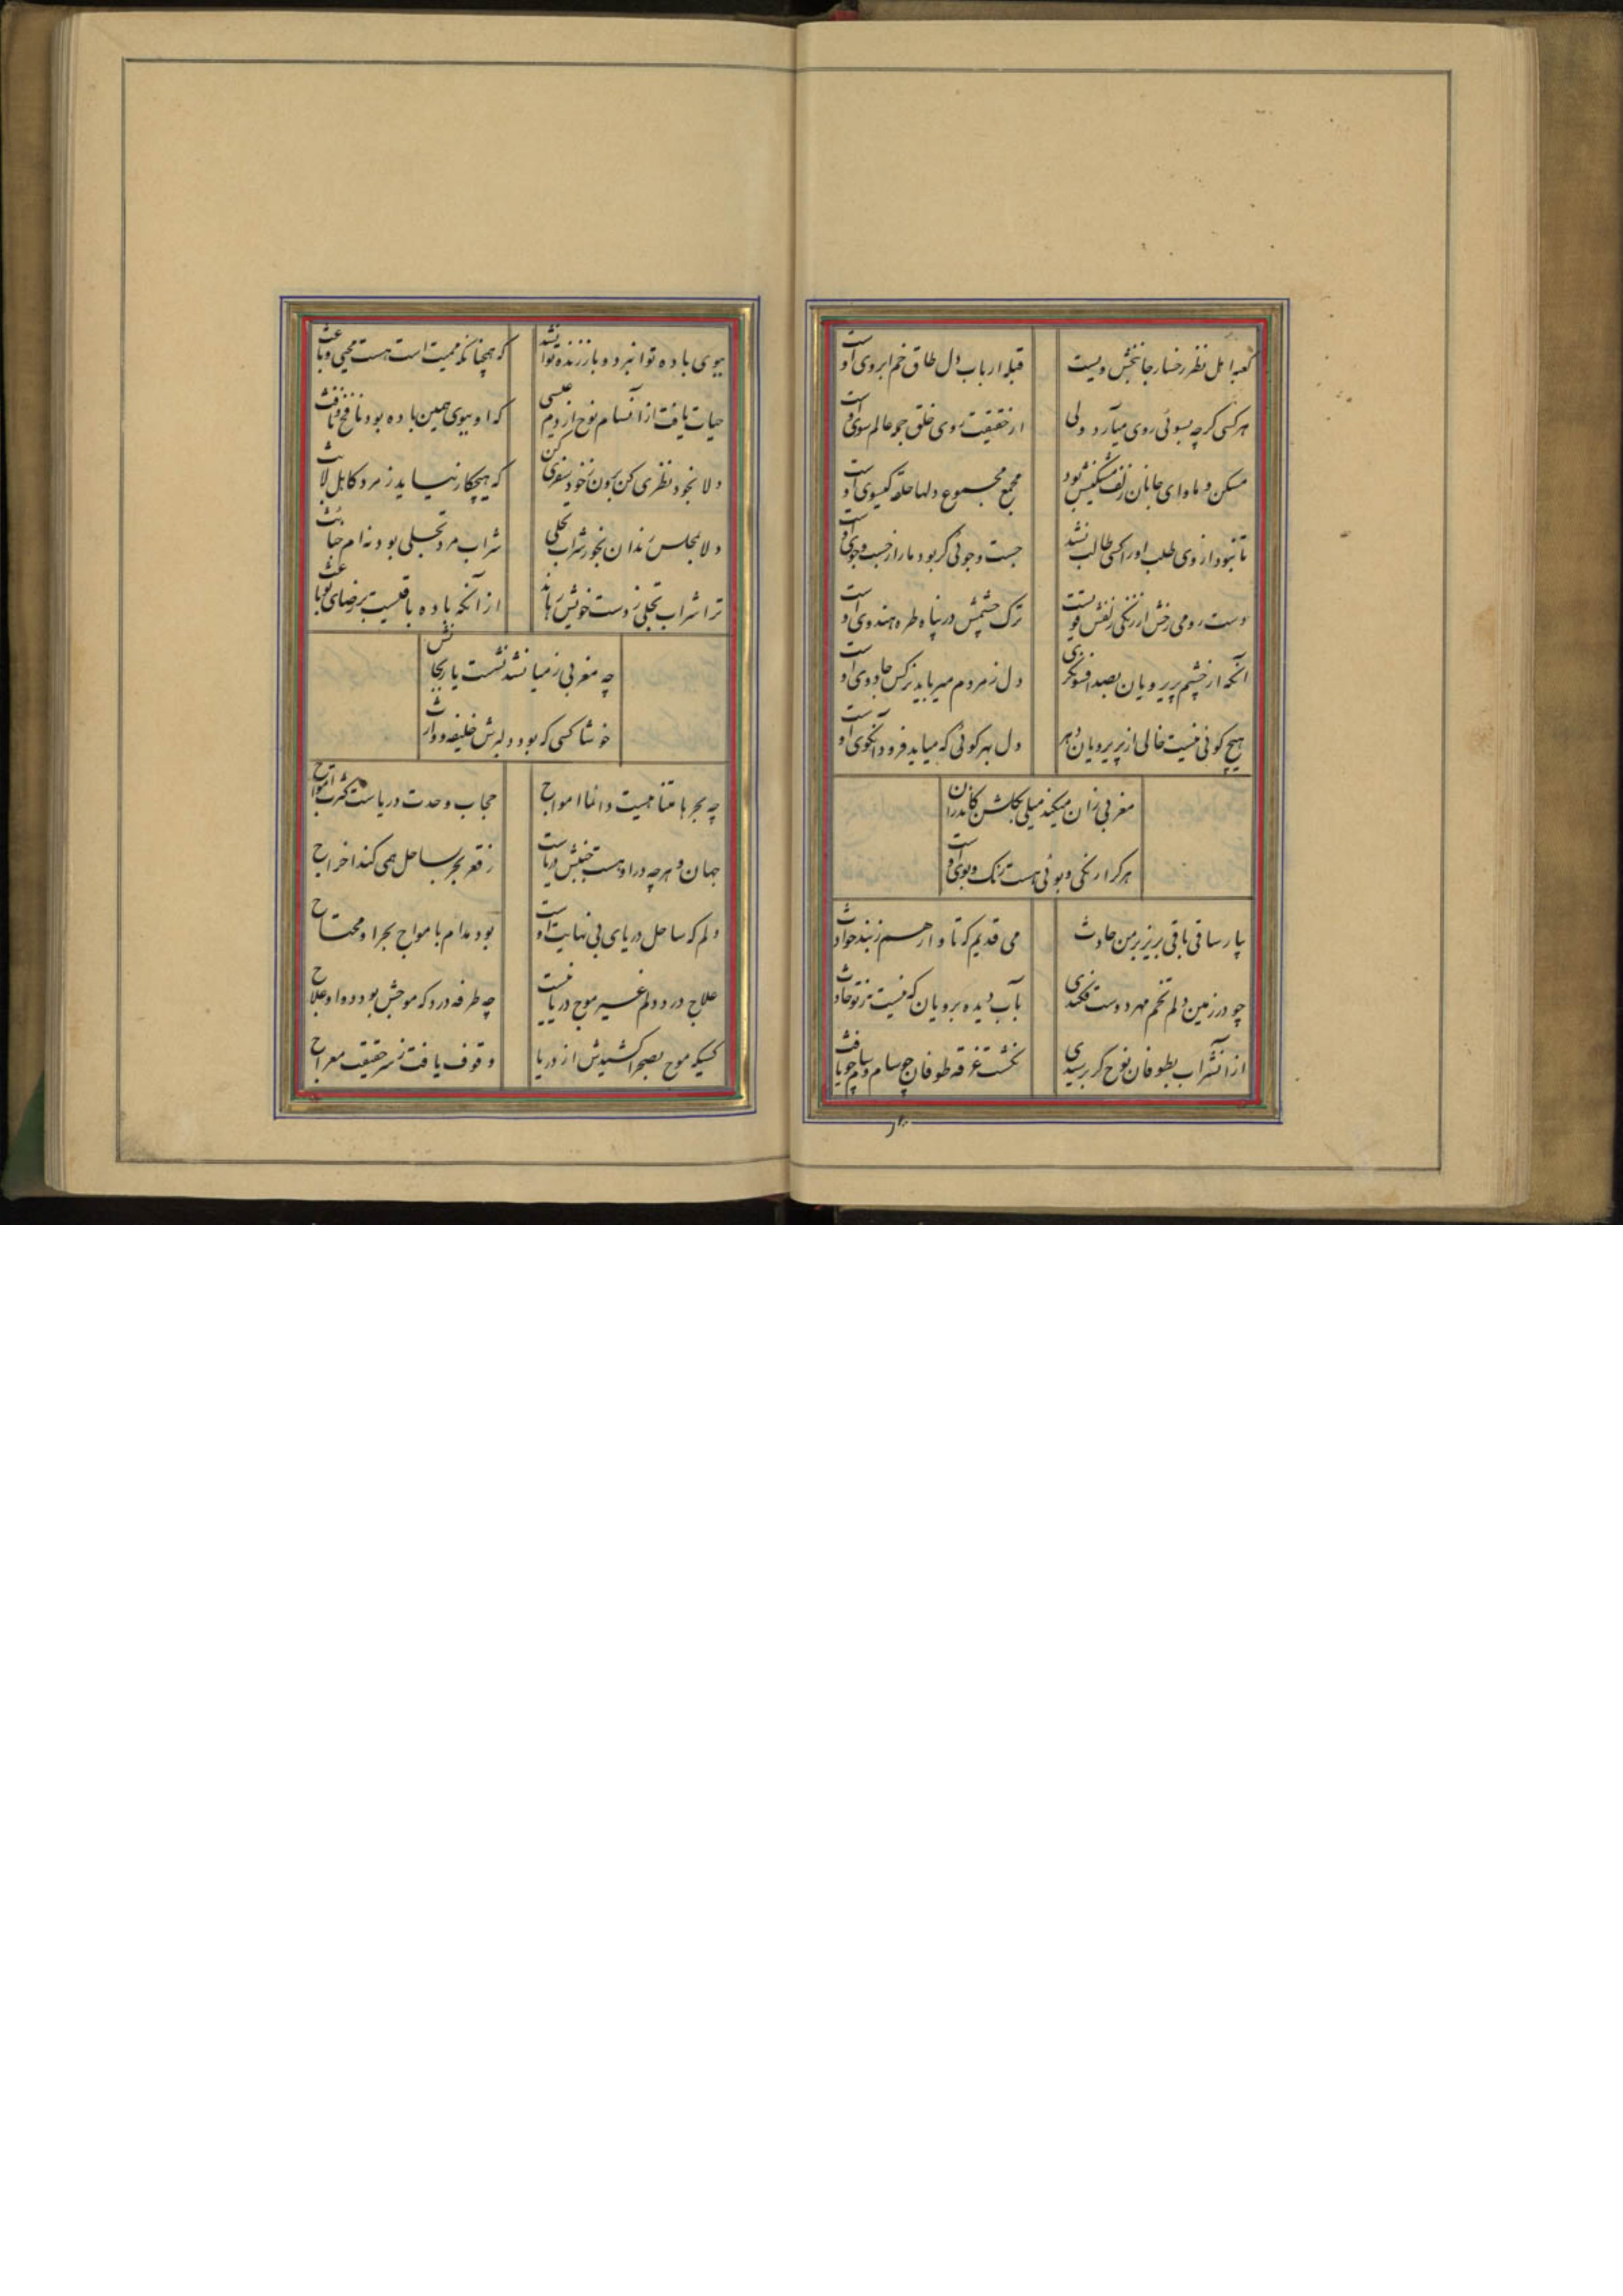 کعبه اهل نظر رخسار جانبخش ویست
قبله ارباب دل طاق خم ابروی اوست
هر کسی گرچه بسوئی روی میآرد ولی
از حقیقت روی خلق جمله عالم سوی اوست
مسکن و ماوای جانان زلف مشکینش بود
مجمع مجموع دلها حلقه گیسوی اوست
تا نبود از وی طلب او را کسی طالب نشد
جست وجوئی گر بود ما را ز جست وجوی اوست
دست رومی رخش از زنگی زلفش قویست
ترک چشمش در پناه طره هندوی اوست
آنکه از چشم پریرویان بصد افسونگری
دل ز مردم میرباید نرگس جادوی اوست
هیچ کوئی نیست خالی از پریرویان دهر
دل بهر کوئی که میاید فرود آنکوی اوست
مغربی زان میکند میلی بگلشن کاندران
هر کرا رنگی و بوئی هست رنگ و بوی اوست
بیار ساقی باقی بریز بر من حادث
می قدیم که تا وارهم ز بند حوادث
چو در زمین دلم تخم مهر دوست فکندی
بآب دیده برویان که نیست جز تو حادث
از آنشراب بطوفان نوح گر برسیدی
نگشت غرقه طوفان چو سام و حام چو یافث
ببوی باده توان مرد و باز زنده توان شد
که همچنانکه ممیت است هست محیی و باعث
حیات یافت از آنسام نوح از دم عیسی
که او ببوی همین باده بود نافخ و نافث
دلا بخود نظری کن برون ز خود سفری کن
که هیچکار نیاید ز مرد کاهل لابث
دلا بمجلس رندان بخور شراب تجلی
شراب مرد تجلی بود نه ام خبائث
ترا شراب تجلی ز دست خویش رهاند
از آنکه باده باقیست بر رضای تو باعث
چه مغربی ز میان شد نشست یار بجایش
خوشا کسی که بود دلبرش خلیفه و وارث
چه بحر نامتناهیست دائما امواج
حجاب وحدت دریاست کثرت امواج
جهان و هرچه در او هست جنبش دریاست
ز قعر بحر بساحل همی کند اخراج
دلم که ساحل دریای بی نهایت اوست
بود مدام بامواج بحر او محتاج
علاج درد دلم غیر موج دریا نیست
چه طرفه درد که موجش بود دوا و علاج
کسیکه موج بصحرا کشیدش از دریا
وقوف یافت ز سر حقیقت معراج